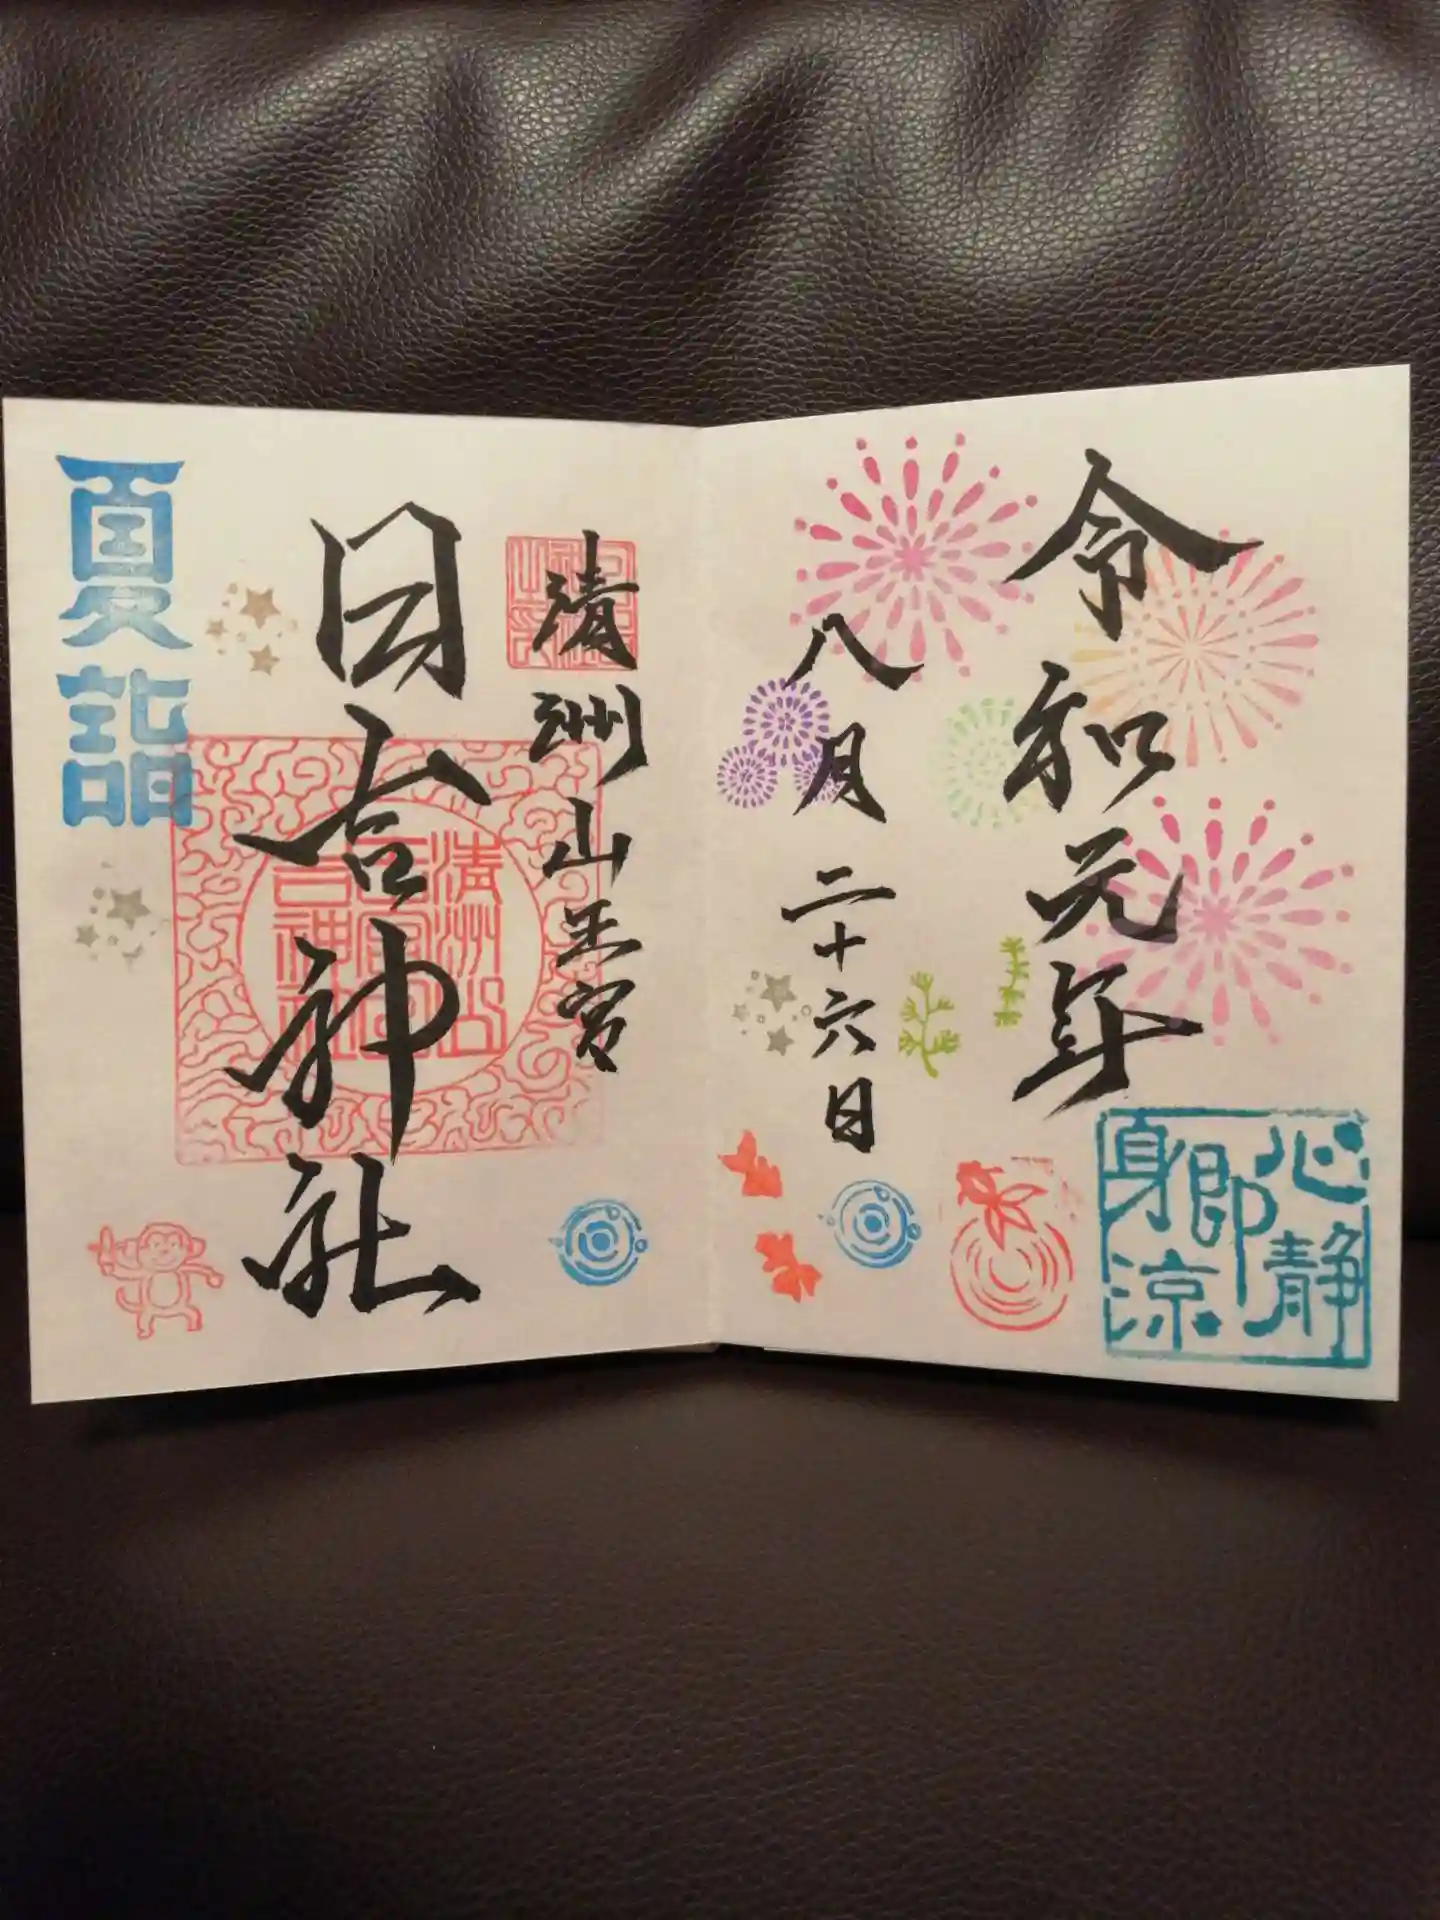 令和元年
八月二十六日
心静
即
身涼
清洲山王宮
日吉神社
清洲山
王宮日
吉神社
夏詣